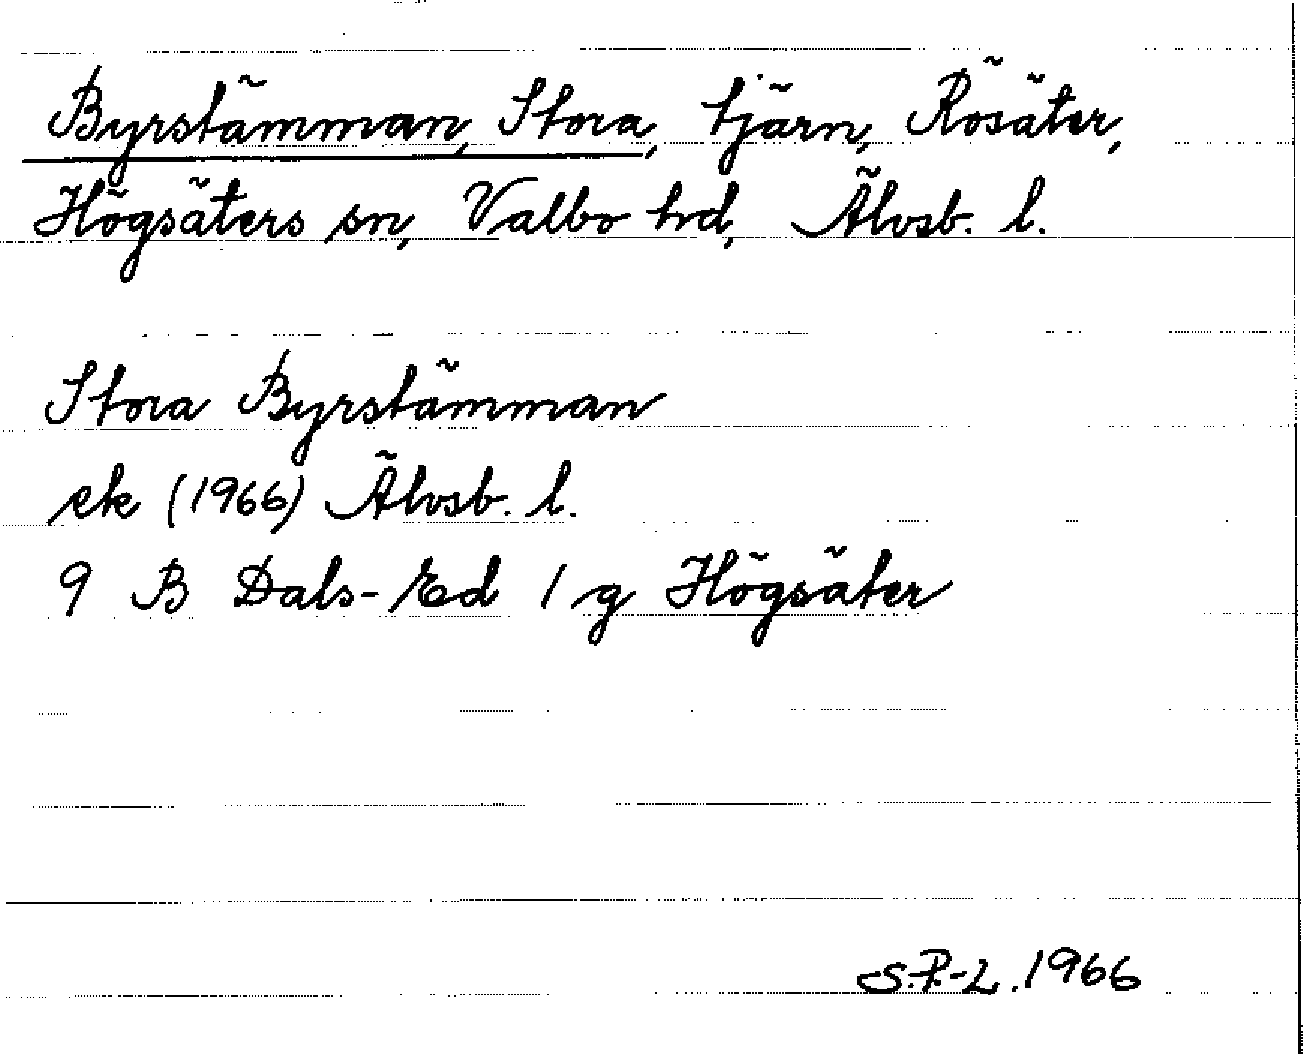 Byrstämman, Stora, tjärn, Rösäter,
Högsäters sn, Valbo hd, Älvsb. l.
Stora Byrstämman
ek (1966) Älvsb. l.
9 B Dals-Ed 1 g Högsäter
S.P.-L. 1966